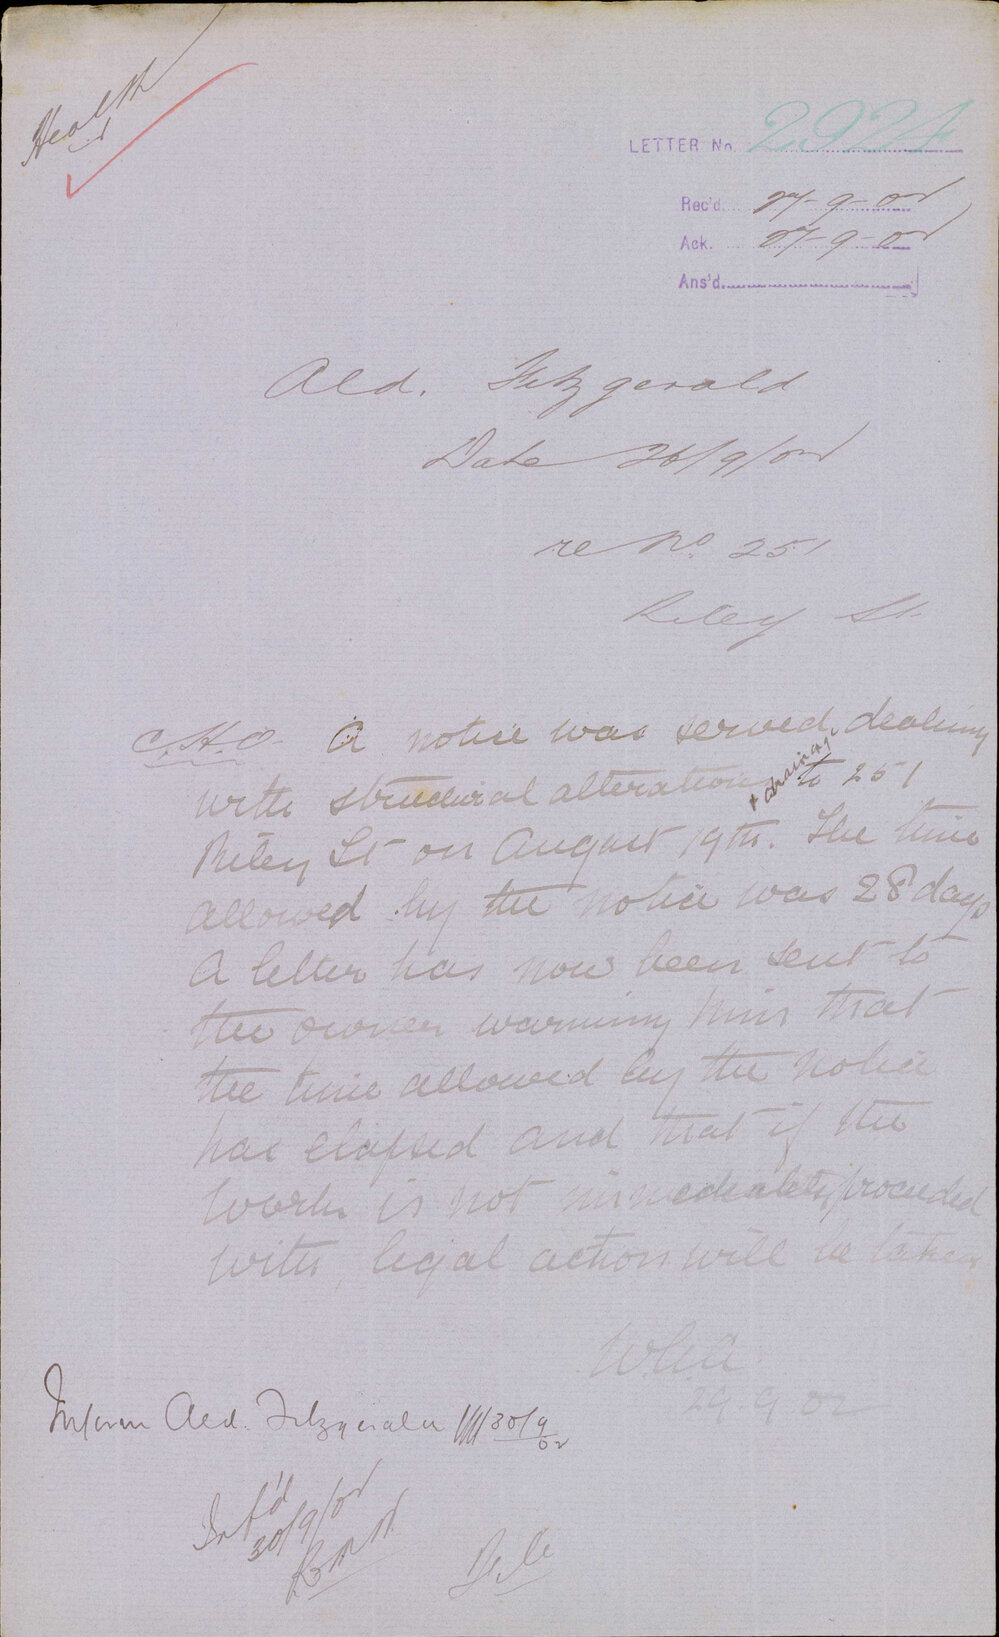 Health
LETTER No. 2924
Rec'd. 27-9-02
Ack. 27-9-02
Ans'd.
Ald. Fitzgerald
Date 26/9/02
re No. 251
Riley St.
C.H.O. A notice was served, dealing
with structural alterations + drainage to 251
Riley St on August 19th. The time
allowed by the notice was 28 days
A letter has now been sent to
the owner warning him that
the time allowed by the notice
has elapsed and that if the
work is not immediately proceeded
with, legal action will be taken
29.9.02
Inform Ald. Fitzgerald 30/9/02
Inf'd
30/9/02
File